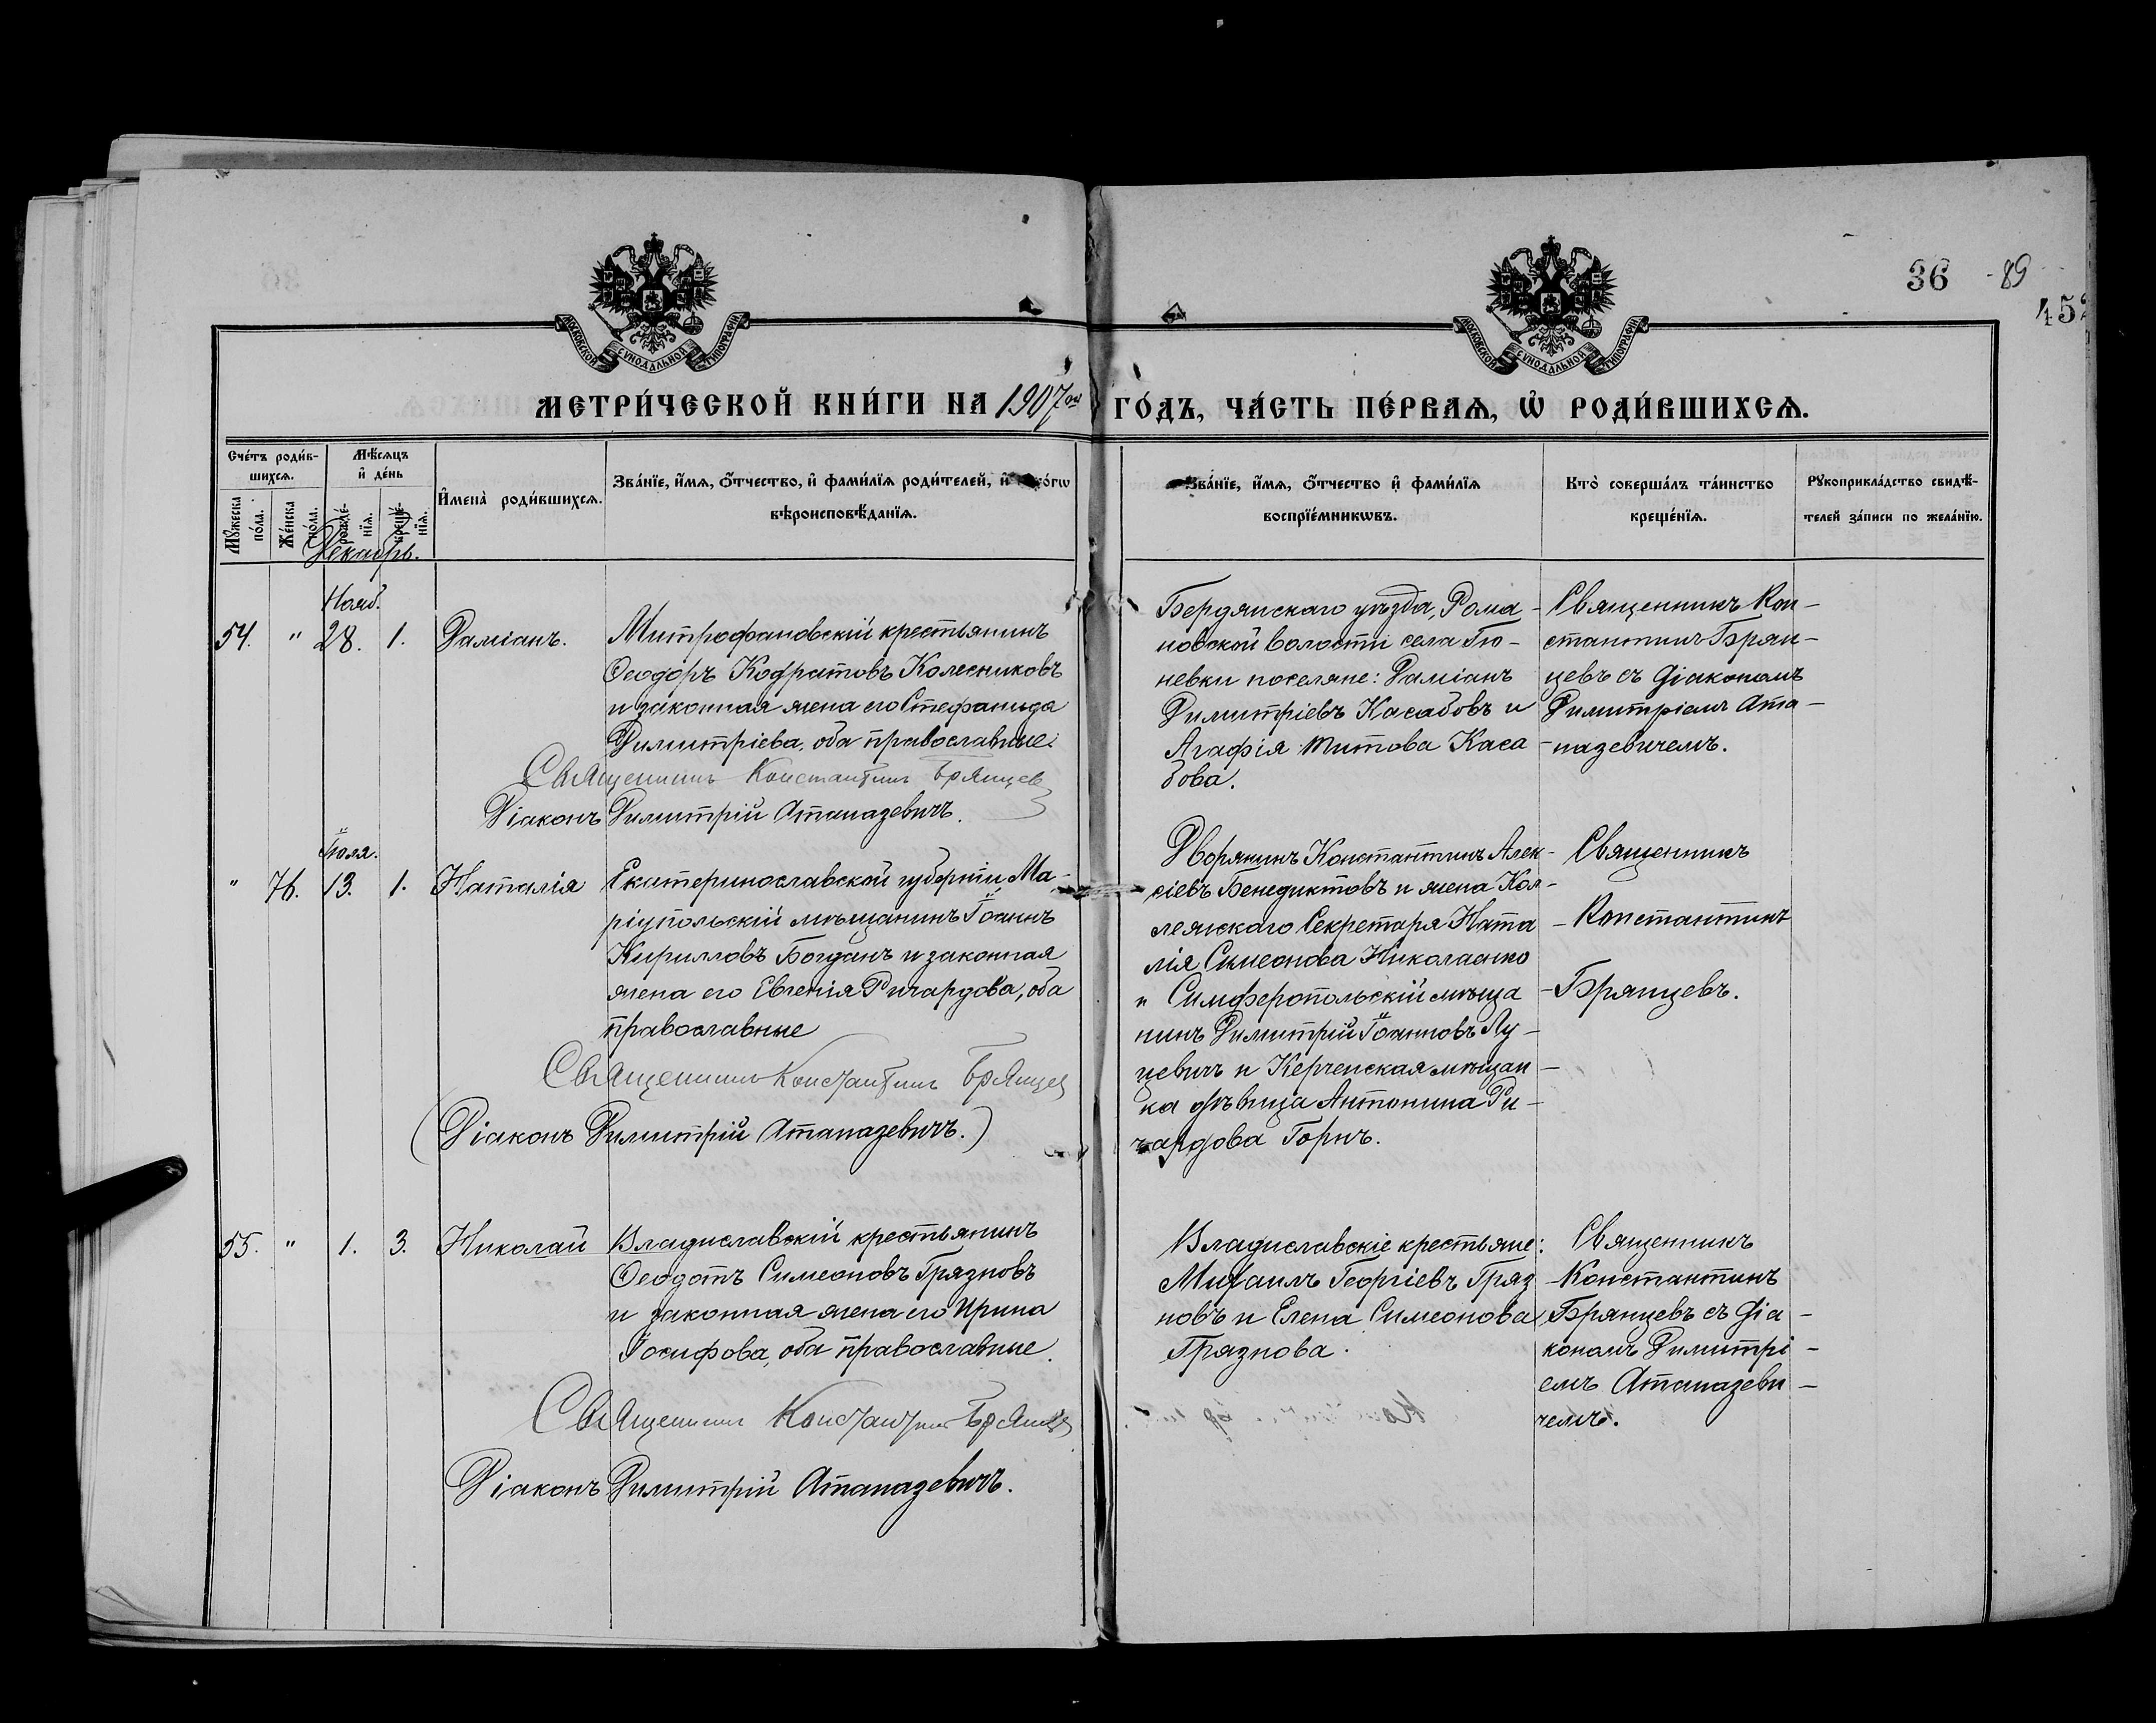 36 89
452
МОСКОВСКОЙ СѴНОДАЛЬНОЙ ТИПОГРАФІИ
МОСКОВСКОЙ СѴНОДАЛЬНОЙ ТИПОГРАФІИ
МЕТРИ́ЧЕСКОЙ КНИ́ГИ НА 1907 ой ГО́ДЪ, ЧА́СТЬ ПЕ́РВАѦ, Ѡ҆ РОДИ́ВШИХСѦ.
Сче́тъ роди́в-
шихсѧ.
Мꙋжеска по́ла.
Же́нска по́ла.
Мѣ́сѧцъ
и҆ де́нь
рожде́-
нїѧ.
креще́-
нїѧ.
И҆мена̀ роди́вшихсѧ.
Зва́нїе, и҆́мѧ, ѻ҆́тчество, и҆ фами́лїѧ роди́телей, и҆
вѣроисповѣ́данїѧ.
Зва́нїе, и҆́мѧ, ѻ҆́тчество и҆ фами́лїѧ
воспрїе́мникѡвъ.
Кто̀ соверша́лъ та́инство
креще́нїѧ.
Рꙋкоприкла́дство свидѣ́-
телей за́писи по жела́нїю.
Декабрь.
Нояб.
54. " 28. 1. Даміанъ.
Митрофановскій крестьянинъ
Ѳеодоръ Кофратовъ Колесниковъ
и законная жена его Стефанида
Димитріева, оба православные.
Священникъ Константинъ Брянцев
Діаконъ Димитрій Атаназевичъ.
Бердянскаго уѣзда, Рома-
новской волости села Гю-
невки поселяне: Даміанъ
Димитріевъ Касабовъ и
Агафія Титова Каса-
бова.
Священникъ Кон-
стантинъ Брян-
цевъ съ діакономъ
Димитріемъ Ата-
назевичемъ.
Іюля.
" 76. 13. 1. Наталія
Екатеринославской губерніи, Ма-
ріупольскій мѣщанинъ Іоаннъ
Кирилловъ Богданъ и законная
жена его Евгенія Ричардова, оба
православные
Священникъ Константинъ Брянцев
(Діаконъ Димитрій Атаназевичъ.)
Дворянинъ Константинъ Алек-
сіевъ Бенедиктовъ и жена Кол-
лежскаго Секретаря Ната-
лія Симеонова Николаенко
и Симферопольскій мѣща-
нинъ Димитрій Іоанновъ Лу-
цевичъ и Керченская мѣщан-
ка дѣвица Антонина Ри-
чардова Горнъ.
Священникъ
Константинъ
Брянцевъ.
55. " 1. 3. Николай
Владиславскій крестьянинъ
Ѳеодотъ Симеоновъ Грязновъ
и законная жена его Ирина
Іосифова, оба православные.
Священникъ Константинъ Брянцев
Діаконъ Димитрій Атаназевичъ.
Владиславскіе крестьяне:
Михаилъ Георгіевъ Гряз-
новъ и Елена Симеонова
Грязнова.
Священникъ
Константинъ
Брянцевъ съ діа-
кономъ Димитрі-
емъ Атаназеви-
чемъ.